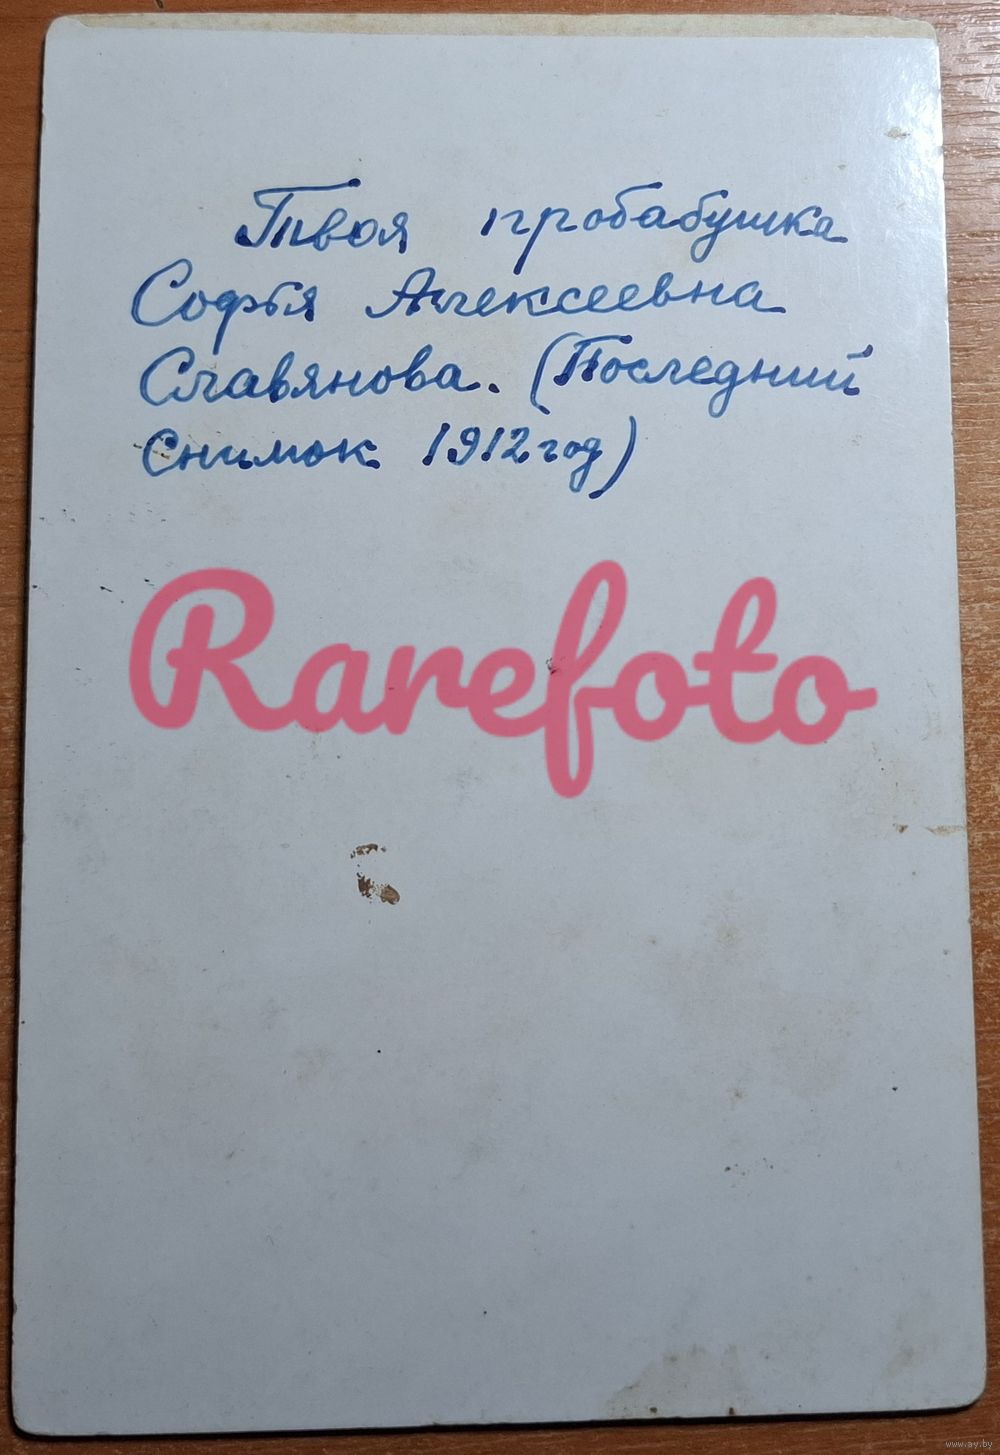 Твоя пробабушка
Софья Алексеевна
Славянова. (Последний
Снимок 1912 год)
Rarefoto
www.ay.by